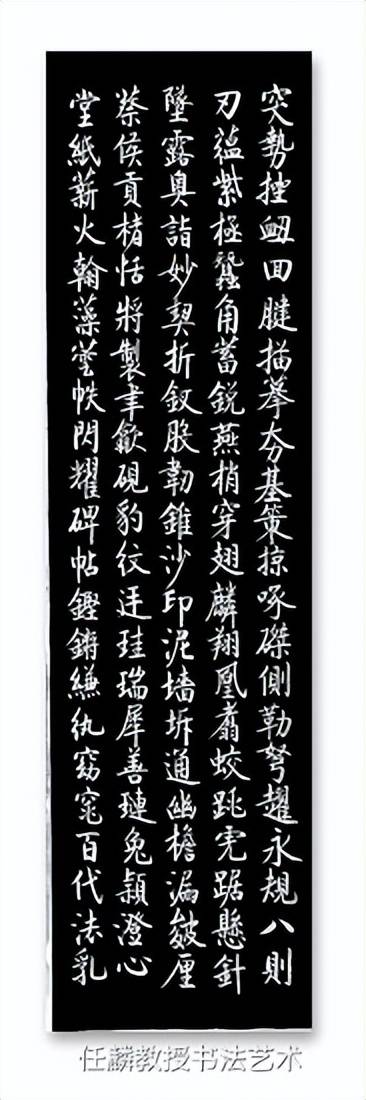 突勢挫衄回腱描摹夯基策掠啄磔側勒弩趯永規八則
刃藴紫極蠶角蓄銳燕梢穿翅麟翔凰翥蛟跳虎踞懸針
墜露奧詣妙契折釵股韌錐沙印泥墙坼通幽檐漏皴厘
蔡侯貢楮恬將製聿歙硯豹紋珪瑞犀善璉兔穎澄心
堂紙薪火翰藻帙閃耀碑帖鏗鏘縑紈窈窕百代法乳
任麟教授书法艺术